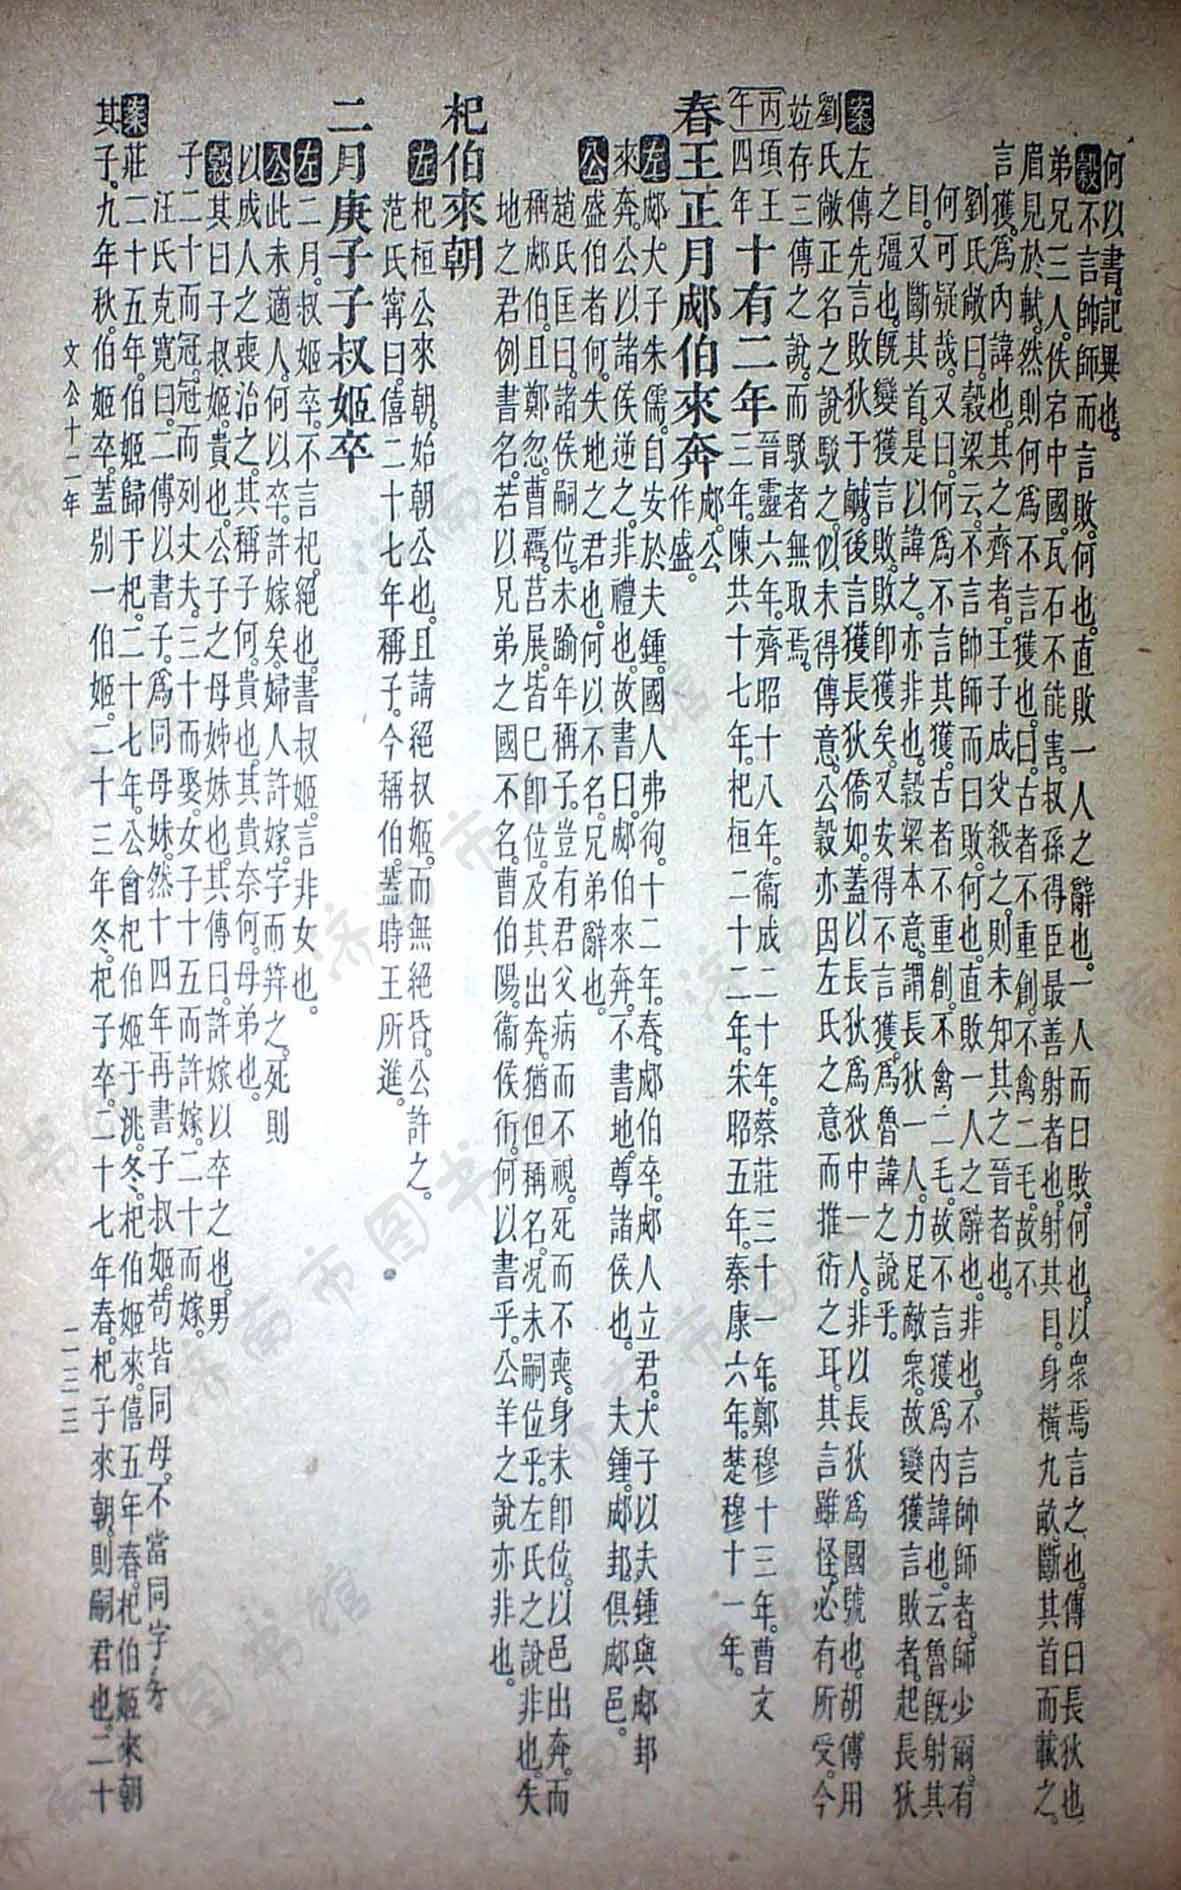 何以書。記異也。
穀不言帥師而言敗。何也。直敗一人之辭也。一人而曰敗。何也。以衆焉言之也。傳曰。長狄也。
弟兄三人。佚宕中國。瓦石不能害。叔孫得臣。最善射者也。射其目。身橫九畝。斷其首而載之。
眉見於軾。然則何爲不言獲也。曰。古者不重創。不禽二毛。故不
言獲。爲內諱也。其之齊者。王子成父殺之。則未知其之晉者也。
劉氏敞曰。穀梁云。不言帥師而曰敗。何也。直敗一人之辭也。非也。不言帥師者。師少爾。有
何可疑哉。又曰。何爲不言其獲。古者不重創。不禽二毛。故不言獲。爲內諱也。云魯旣射其
目。又斷其首。是以諱之。亦非也。穀梁本意。謂長狄一人。力足敵衆。故變獲言敗者。起長狄
之彊也。旣變獲言敗。敗卽獲矣。又安得不言獲。爲魯諱之說乎。
案左傳先言敗狄于鹹。後言獲長狄僑如。蓋以長狄爲狄中一人。非以長狄爲國號也。胡傳用
劉氏敞正名之說駁之。似未得傳意。公穀亦因左氏之意而推衍之耳。其言雖怪。必有所受。今
竝存三傳之說。而駁者無取焉。
丙午 項王四年 十有二年 晉靈六年。齊昭十八年。衞成二十年。蔡莊三十一年。鄭穆十三年。曹文
三年。陳共十七年。杞桓二十二年。宋昭五年。秦康六年。楚穆十一年。
春王正月郕伯來奔 郕。公作盛。
左郕大子朱儒。自安於夫鍾。國人弗徇。十二年。春。郕伯卒。郕人立君。大子以夫鍾與郕邽
來奔。公以諸侯逆之。非禮也。故書曰。郕伯來奔。不書地。尊諸侯也。 夫鍾。郕邽。俱郕邑。
公盛伯者何。失地之君也。何以不名。兄弟辭也。
趙氏匡曰。諸侯嗣位。未踰年稱子。豈有君父病而不視。死而不喪。身未卽位。以邑出奔。而
稱郕伯。且鄭忽。曹羈。莒展。皆已卽位。及其出奔。猶但稱名。況未嗣位乎。左氏之說非也。失
地之君例書名。若以兄弟之國不名。曹伯陽。衞侯衎。何以書乎。公羊之說亦非也。
杞伯來朝
左杞桓公來朝。始朝公也。且請絕叔姬。而無絕昏。公許之。
范氏甯曰。僖二十七年稱子。今稱伯。蓋時王所進。
二月庚子子叔姬卒
左二月。叔姬卒。不言杞。絕也。書叔姬。言非女也。
公此未適人。何以卒。許嫁矣。婦人許嫁。字而笄之。死則
以成人之喪治之。其稱子何。貴也。其貴奈何。母弟也。
穀其曰子叔姬。貴也。公子之母姊妹也。其傳曰。許嫁以卒之也。男
子二十而冠。冠而列丈夫。三十而娶。女子十五而許嫁。二十而嫁。
汪氏克寬曰。二傳以書子。爲同母妹。然十四年再書子叔姬。苟皆同母。不當同字矣。
案莊二十五年。伯姬歸于杞。二十七年。公會杞伯姬于洮。冬。杞伯姬來。僖五年春。杞伯姬來朝
其子。九年秋。伯姬卒。蓋別一伯姬。二十三年冬。杞子卒。二十七年春。杞子來朝。則嗣君也。二十
文公十二年
二三三
济南市图书馆